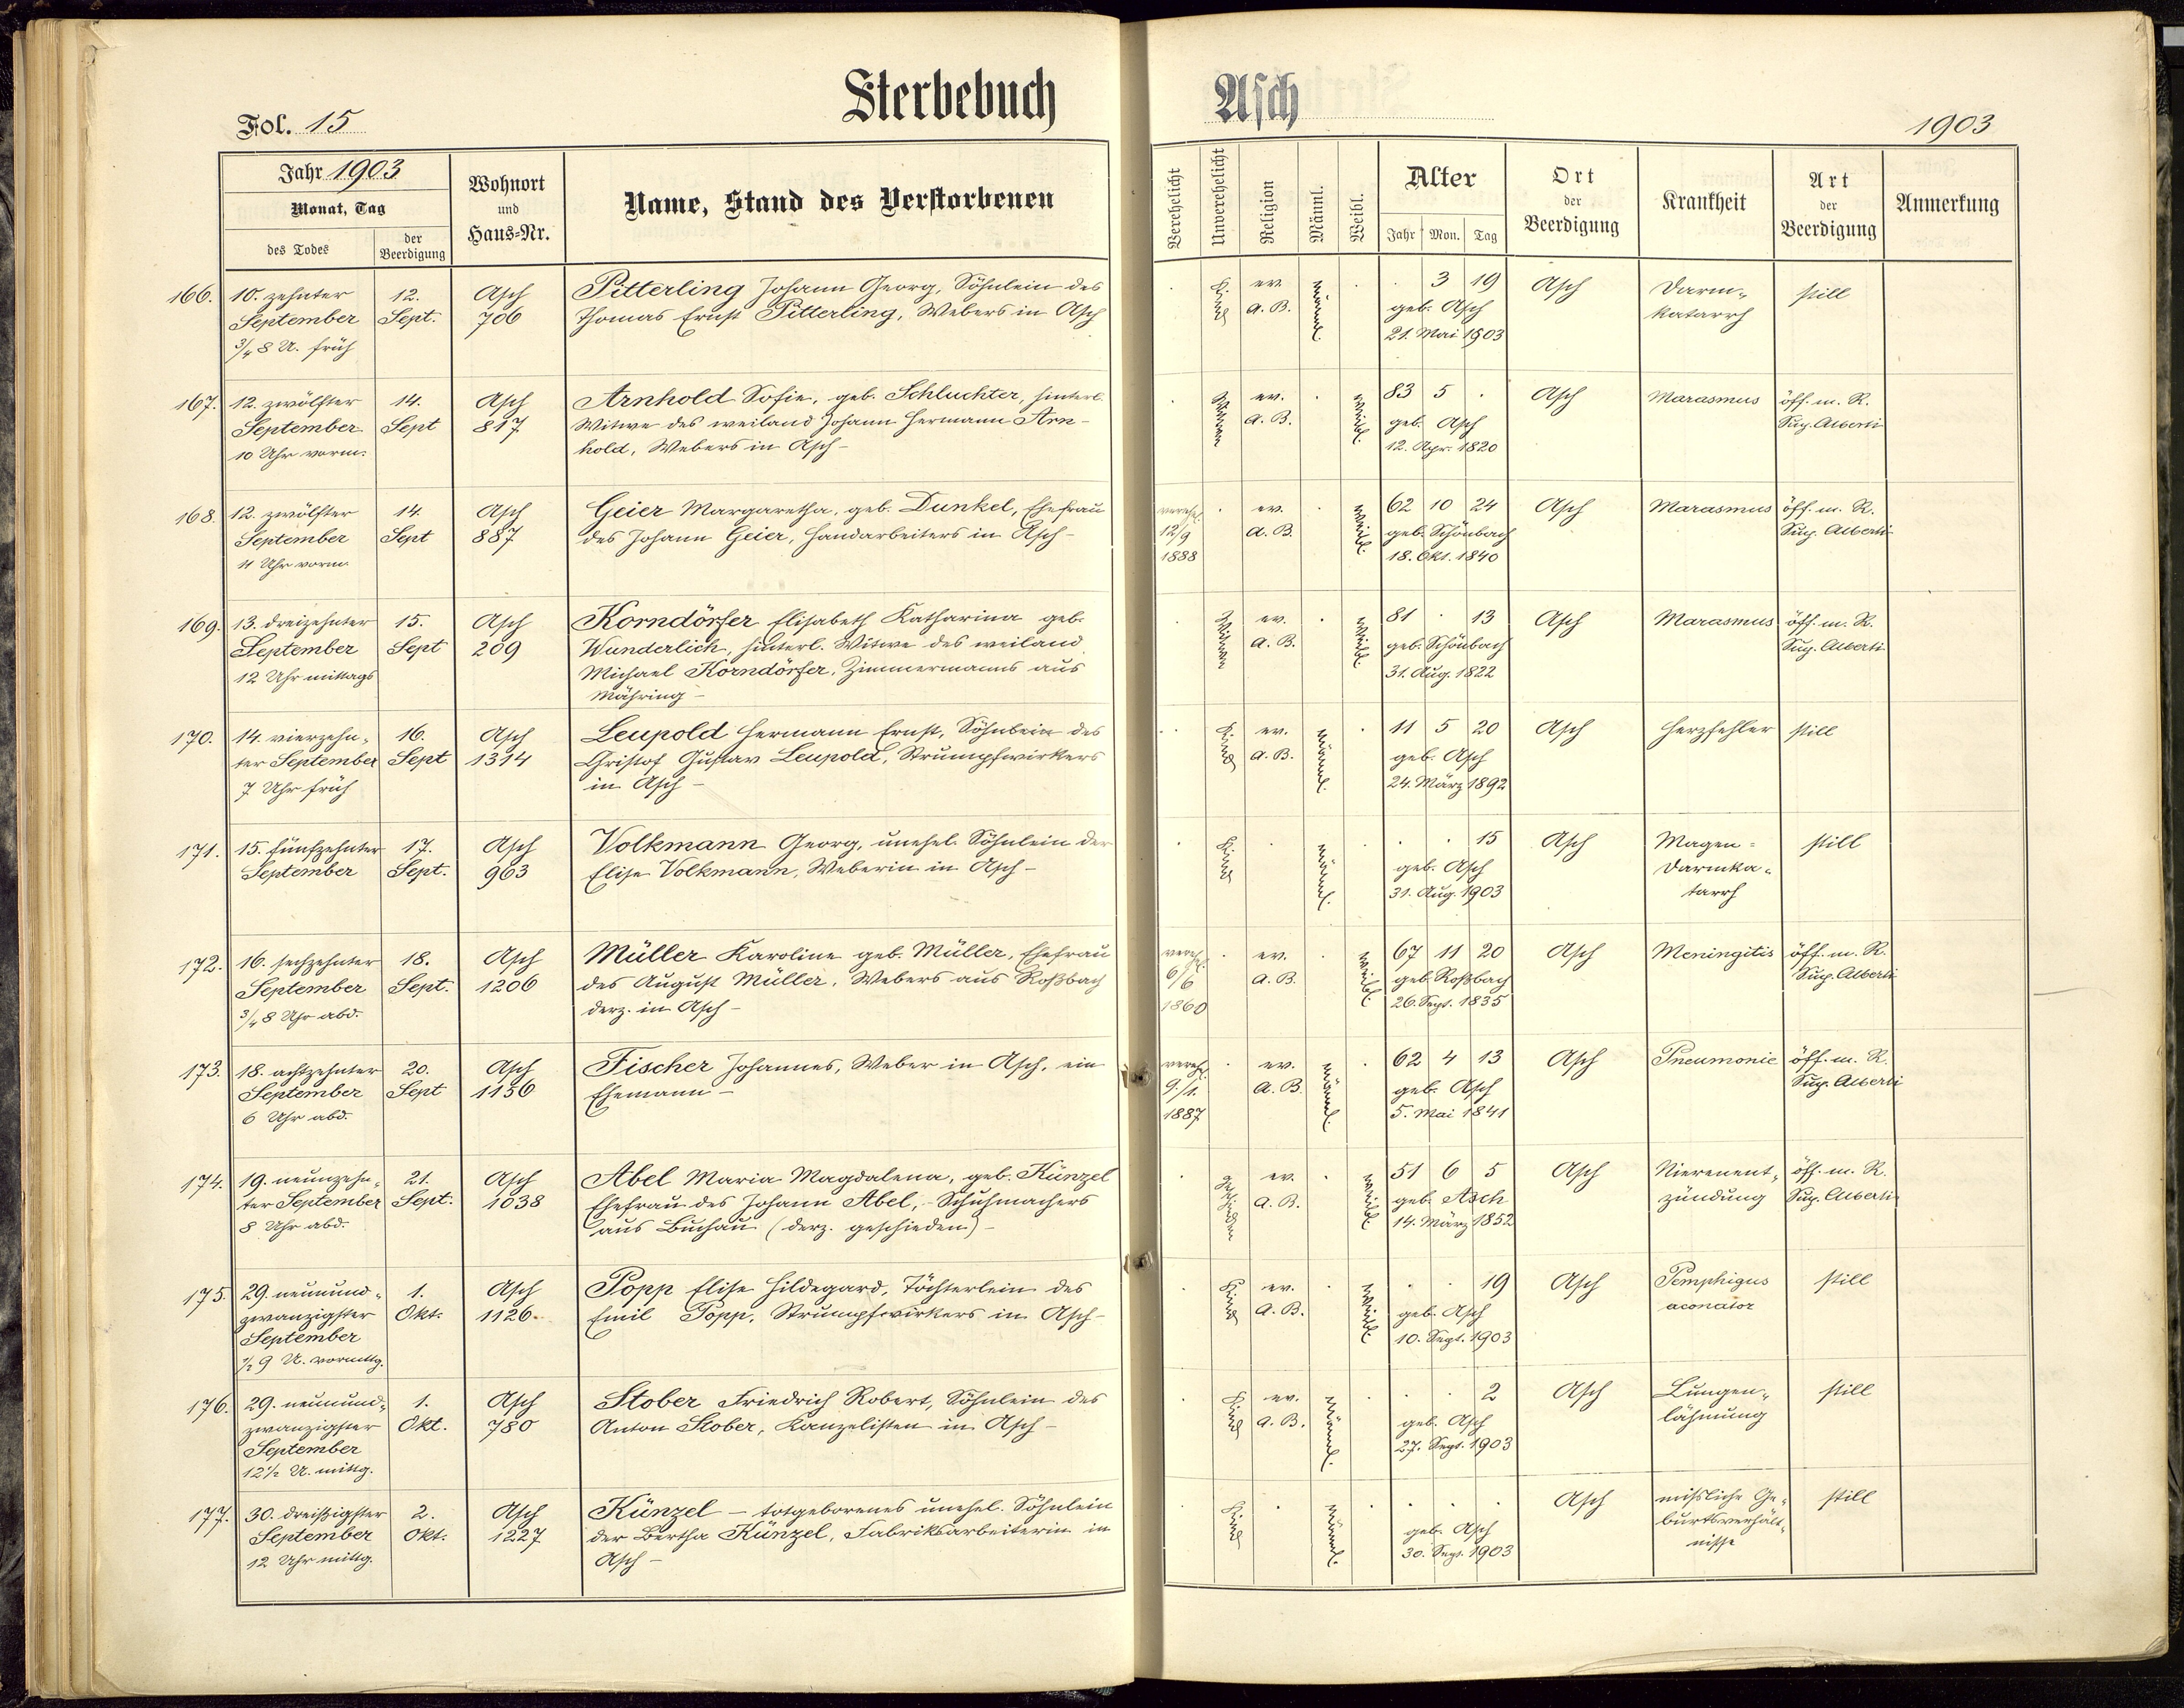 Sterbebuch
Asch
Fol. 15
1903
Jahr 1903
Monat, Tag
des Todes
der Beerdigung
Wohnort und Haus-Nr.
Name, Stand des Verstorbenen
Verehelicht
Unverehelicht
Religion
Männl.
Weibl.
Alter
Jahr Mon. Tag
Ort der Beerdigung
Krankheit
Art der Beerdigung
Anmerkung
166. 10. zehnter 12. Asch Pitterling Johann Georg, Söhnlein des . Kind ev. männl. . . 3 19 Asch Darm- still
September Sept. 706 Thomas Ernst Pitterling, Webers in Asch A. B. geb. Asch katarrh
3/4 8 U. früh 21. Mai 1903
167. 12. zwölfter 14. Asch Arnhold Sofie, geb. Schluchter, hinterl. . Witwe ev. . weibl. 83 5 . Asch Marasmus öff. m. R.
September Sept 817 Witwe des weiland Johann Hermann Arn- A. B. geb. Asch Sup. Alberti
10 Uhr vorm. hold, Webers in Asch - 12. Apr. 1820
168. 12. zwölfter 14. Asch Geier Margaretha, geb. Dunkel, Ehefrau verehel. . ev. . weibl. 62 10 24 Asch Marasmus öff. m. R.
September Sept 887 des Johann Geier, Handarbeiters in Asch - 12/9 A. B. geb. Schönbach Sup. Alberti
11 Uhr vorm. 1888 18. Okt. 1840
169. 13. dreizehnter 15. Asch Korndörfer Elisabeth Katharina geb. . Witwe ev. . weibl. 81 . 13 Asch Marasmus öff. m. R.
September Sept 209 Wunderlich, hinterl. Witwe des weiland A. B. geb. Schönbach Sup. Alberti
12 Uhr mittags Michael Korndörfer, Zimmermanns aus 31. Aug. 1822
Mähring -
170. 14. vierzehn- 16. Asch Leupold Hermann Ernst, Söhnlein des . Kind ev. männl. . 11 5 20 Asch Herzfehler still
ter September Sept 1314 Christof Gustav Leupold, Strumpfwirkers A. B. geb. Asch
7 Uhr früh in Asch - 24. März 1892
171. 15. fünfzehnter 17. Asch Volkmann Georg, unehel. Söhnlein der . Kind . männl. . . . 15 Asch Magen- still
September Sept. 963 Elise Volkmann, Weberin in Asch - geb. Asch Darmka-
31. Aug. 1903 tarrh
172. 16. sechzehnter 18. Asch Müller Karoline geb. Müller, Ehefrau verehel. . ev. . weibl. 67 11 20 Asch Meningitis öff. m. R.
September Sept. 1206 des August Müller, Webers aus Roßbach 6/6 A. B. geb. Roßbach Sup. Alberti
3/4 8 Uhr abd. derz. in Asch - 1860 26. Sept. 1835
173. 18. achtzehnter 20. Asch Fischer Johannes, Weber in Asch, ein verehel. . ev. männl. . 62 4 13 Asch Pneumonie öff. m. R.
September Sept 1136 Ehemann - 9./1. A. B. geb. Asch Sup. Alberti
6 Uhr abd. 1887 5. Mai 1841
174. 19. neunzehn- 21. Asch Abel Maria Magdalena, geb. Künzel . geschieden ev. . weibl. 51 6 5 Asch Nierenent- öff. m. R.
ter September Sept. 1038 Ehefrau des Johann Abel, Schuhmachers A. B. geb. Asch zündung Sup. Alberti
8 Uhr abd. aus Buchau (derz. geschieden) - 14. März 1852
175. 29. neunund- 1. Asch Popp Elise Hildegard, Töchterlein des . Kind ev. . weibl. . . 19 Asch Pemphigus still
zwanzigster Okt. 1126 Emil Popp, Strumpfwirkers in Asch - A. B. geb. Asch
September 10. Sept. 1903
1/2 9 U. vormttg.
176. 29. neunund- 1. Asch Stober Friedrich Robert, Söhnlein des . Kind ev. männl. . . . 2 Asch Lungen- still
zwanzigster Okt. 780 Anton Stober, Kanzelisten in Asch - A. B. geb. Asch lähmung
September 27. Sept. 1903
12 1/2 U. mittg.
177. 30. dreißigster 2. Asch Künzel - totgeborenes unehel. Söhnlein . Kind . männl. . . . . Asch mißliche Ge- still
September Okt. 1227 der Bertha Künzel, Fabriksarbeiterin in geb. Asch burtsverhält-
12 Uhr mittg. Asch - 30. Sept. 1903 nisse